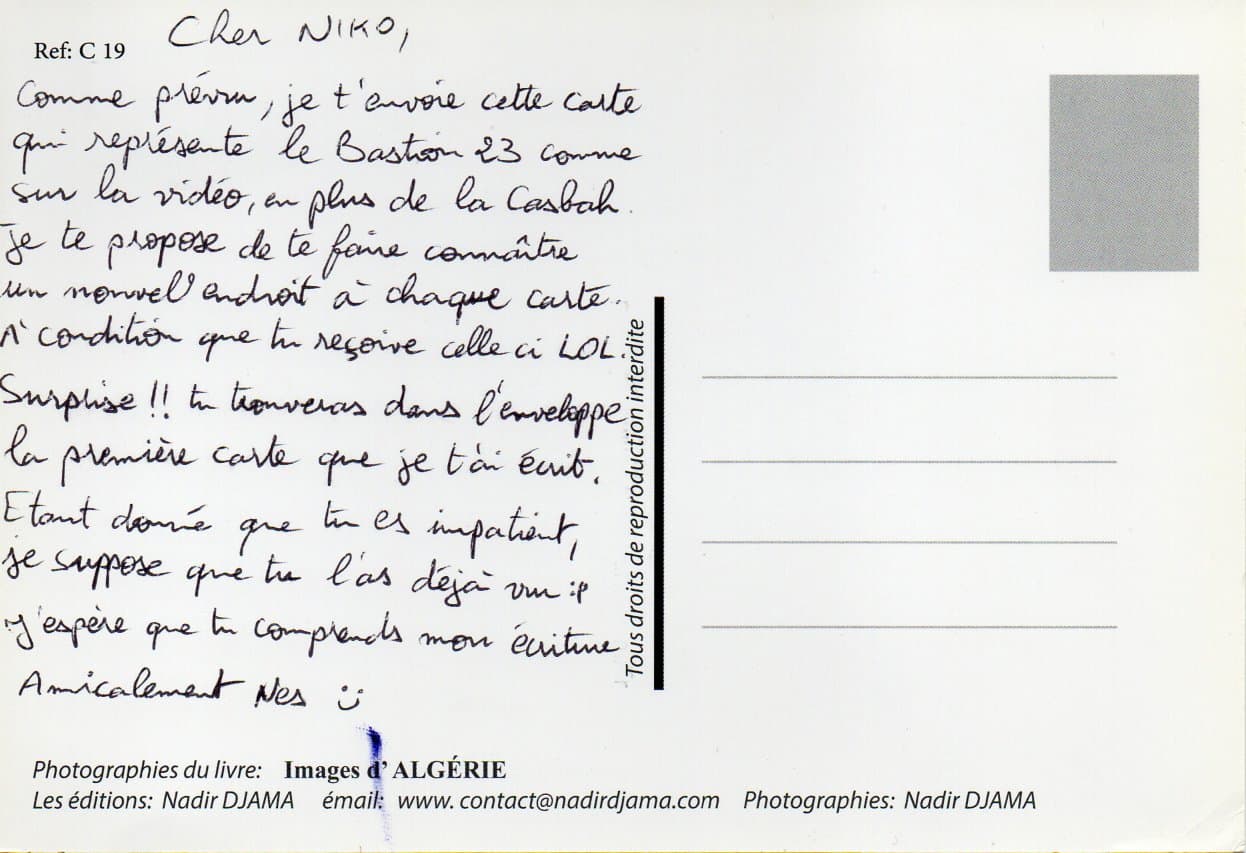 Cher NIKO,
Ref: C 19
Comme prévu, je t'envoie cette carte
qui représente le Bastion 23 comme
sur la vidéo, en plus de la Casbah.
Je te propose de te faire connaître
un nouvel endroit à chaque carte.
A condition que tu reçoive celle ci LOL.
Surprise !! tu trouveras dans l'enveloppe
la première carte que je t'ai écrit.
Etant donné que tu es impatient,
je suppose que tu l'as déjà vu :p
J'espère que tu comprends mon écriture
Amicalement Nes :)
Tous droits de reproduction interdite
Photographies du livre: Images d' ALGÉRIE
Les éditions: Nadir DJAMA émail: www. contact@nadirdjama.com Photographies: Nadir DJAMA